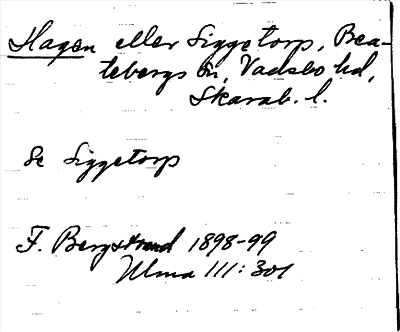 Hagen eller Siggetorp, Bea-
tebergs sn, Vadsbo hd,
Skarab. l.
Se Siggetorp
F. Bergstrand 1898-99
Ulma 111:301